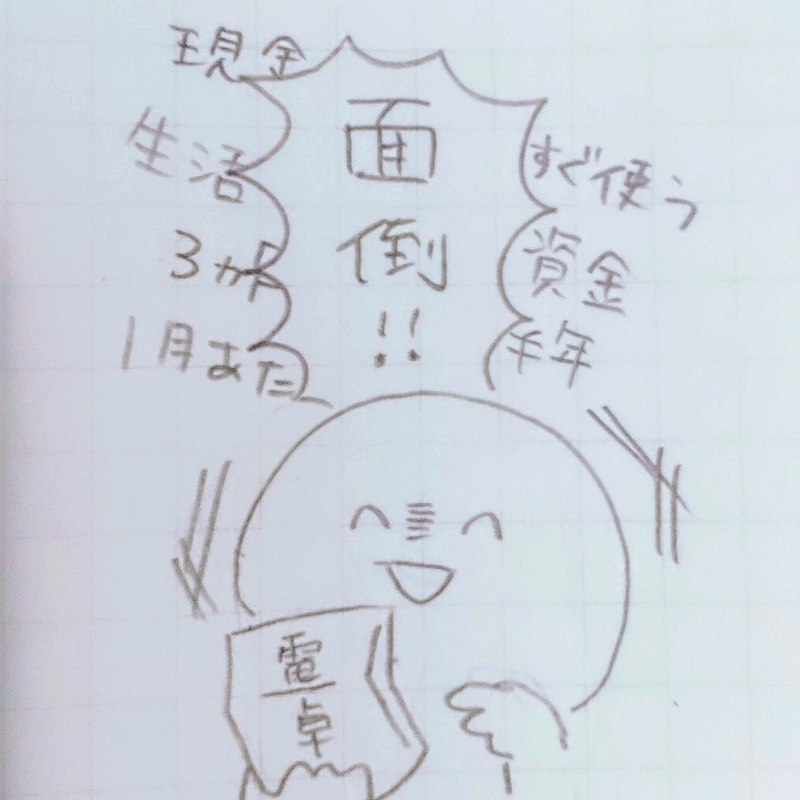 現金
生活
3か月
1月あた
面
倒
!!
すぐ使う
資金
半年
電
卓